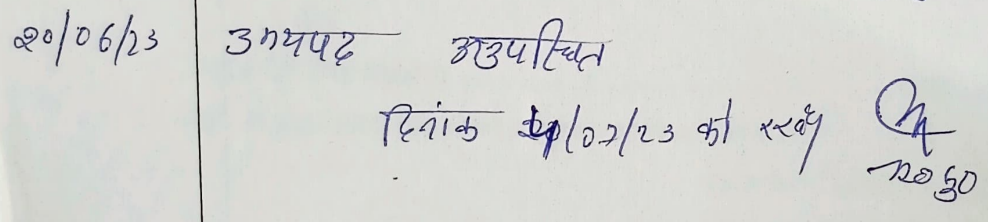 २०/06/23 उभयपद अनुपस्थित
दिनांक /07/23 को रखें